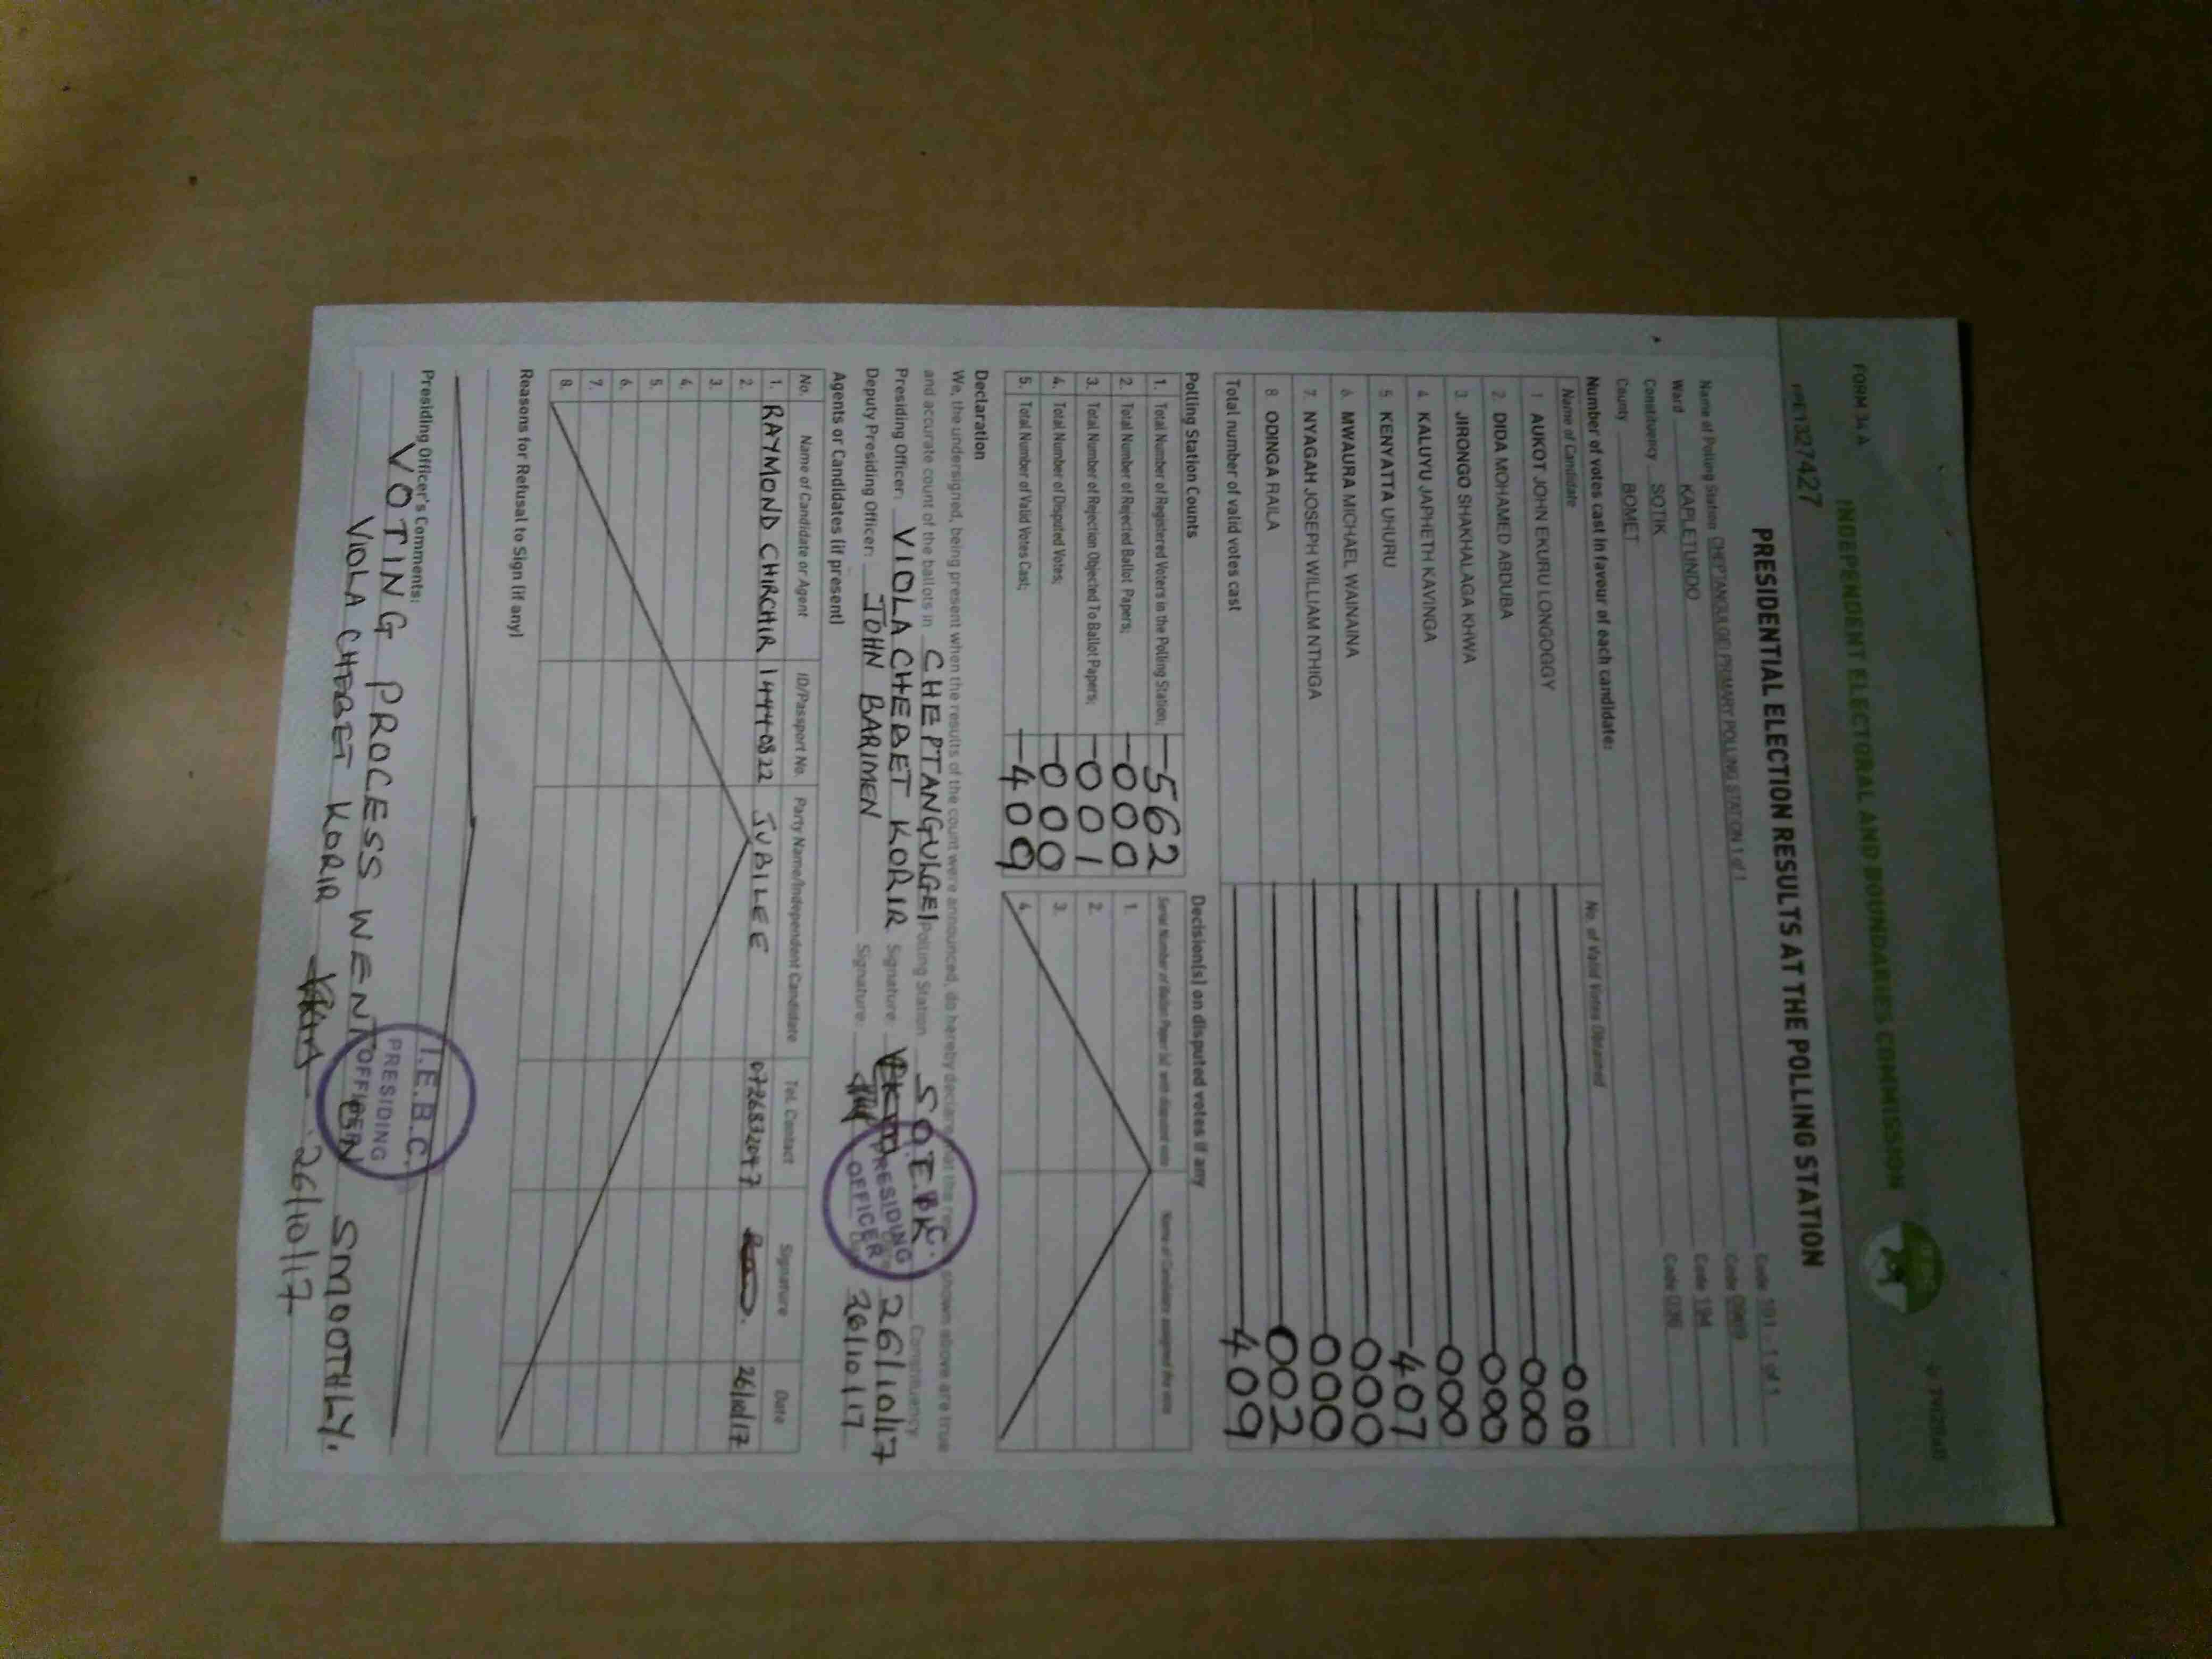 FORM 34 A
INDEPENDENT ELECTORAL AND BOUNDARIES COMMISSION
PRESIDENTIAL ELECTION RESULTS AT THE POLLING STATION
Name of Polling Station CHEPTANGULGEI PRIMARY POLLING STATION 1 of 1 Code 101 - 1 of 1
Ward KAPLETUNDO Code
Constituency SOTIK Code 194
County BOMET Code 036
Number of votes cast in favour of each candidate:
Name of Candidate No. of Valid Votes Obtained
1 AUKOT JOHN EKURU LONGOGGY 000
2. DIDA MOHAMED ABDUBA 000
3. JIRONGO SHAKHALAGA KHWA 000
4. KALUYU JAPHETH KAVINGA 000
5. KENYATTA UHURU 407
6. MWAURA MICHAEL WAINAINA 000
7. NYAGAH JOSEPH WILLIAM NTHIGA 000
8. ODINGA RAILA 002
Total number of valid votes cast 409
Polling Station Counts
1. Total Number of Registered Voters in the Polling Station; 562
2. Total Number of Rejected Ballot Papers; 000
3. Total Number of Rejection Objected To Ballot Papers; 001
4. Total Number of Disputed Votes; 000
5. Total Number of Valid Votes Cast; 409
Decision(s) on disputed votes if any
1.
2.
3.
4.
Declaration
We, the undersigned, being present when the results of the count were announced, do hereby declare that the results shown above are true
and accurate count of the ballots in CHEPTANGULGEI Polling Station SOTIK Constituency
Presiding Officer: VIOLA CHEBET KORIR Signature: 26/10/17
Deputy Presiding Officer: JOHN BARIMEN Signature: 26/10/17
I.E.B.C.
PRESIDING
OFFICER
Agents or Candidates (if present)
No. Name of Candidate or Agent ID/Passport No. Party Name/Independent Candidate Tel. Contact Signature Date
1. RAYMOND CHIRCHIR 14440822 JUBILEE 0726832047 26/10/17
2.
3.
4.
5.
6.
7.
8.
Reasons for Refusal to Sign (if any)
Presiding Officer's Comments:
VOTING PROCESS WENT ON SMOOTHLY.
VIOLA CHEBET KORIR 26/10/17
I.E.B.C.
PRESIDING
OFFICER